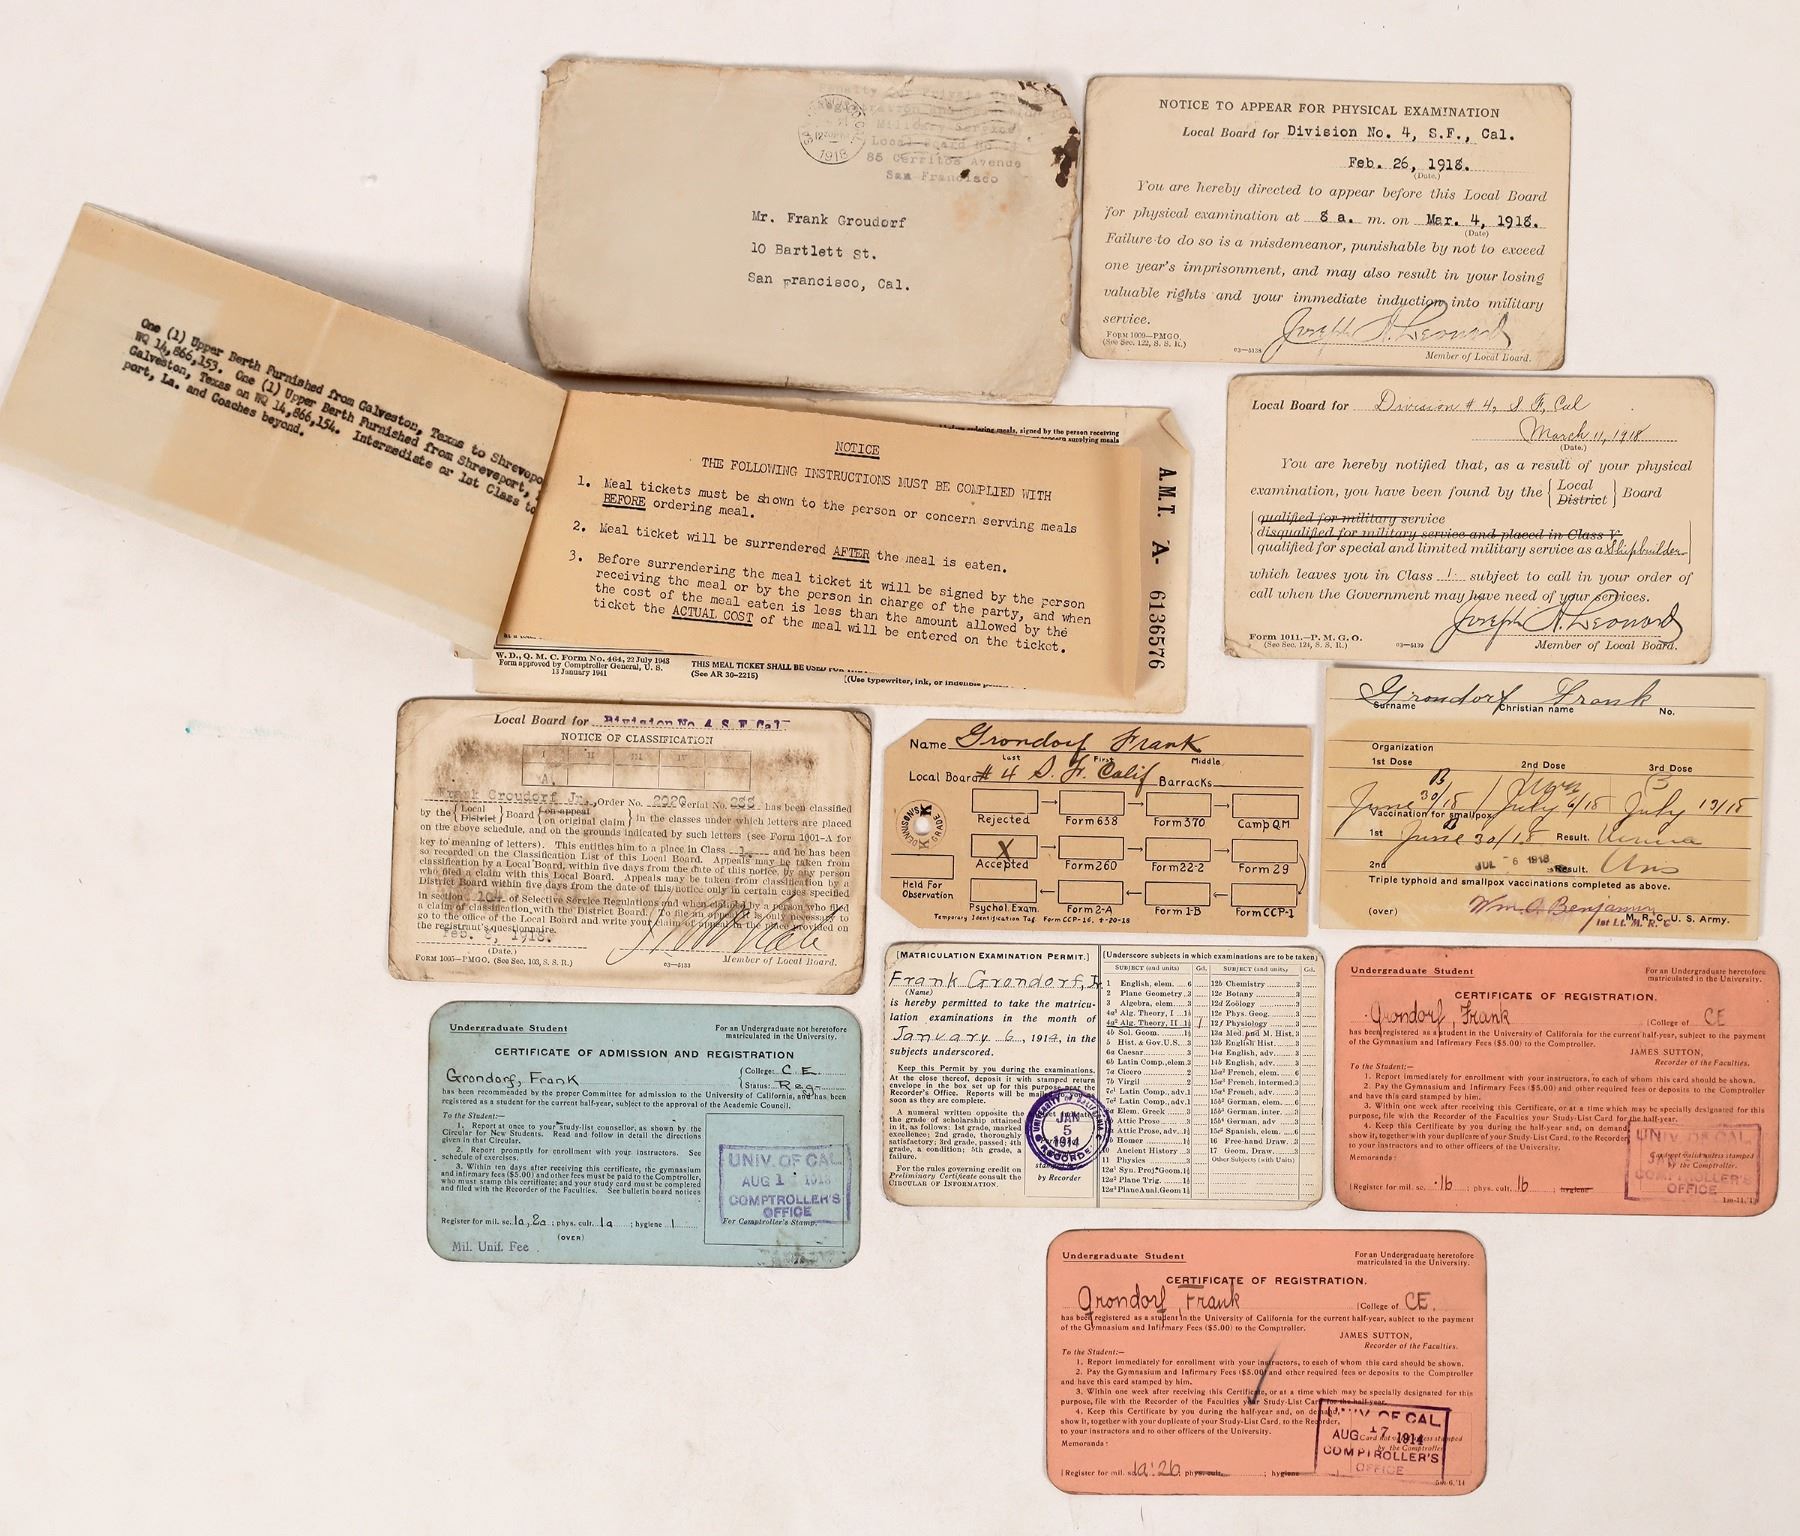 Penalty for Private
Military Service
Local Board No. 4
85 Cerritos Avenue
San Francisco
1918
Mr. Frank Groudorf
10 Bartlett St.
San Francisco, Cal.
NOTICE TO APPEAR FOR PHYSICAL EXAMINATION
Local Board for Division No. 4, S.F., Cal.
Feb. 26, 1918.
(Date.)
You are hereby directed to appear before this Local Board
for physical examination at 8 a. m. on Mar. 4, 1918.
(Date)
Failure to do so is a misdemeanor, punishable by not to exceed
one year's imprisonment, and may also result in your losing
valuable rights and your immediate induction into military
service.
Joseph A. Leonard
FORM 1009—PMGO.
(See Sec. 122, S. S. R.)
03—5138
Member of Local Board.
One (1) Upper Berth Furnished from Galveston, Texas to Shrevepo
WQ 14,866,153. One (1) Upper Berth Furnished from Shreveport,
Galveston, Texas on WQ 14,866,154. Intermediate or 1st Class to
port, La. and Coaches beyond.
ordering meals, signed by the person receiving
or concern supplying meals
NOTICE
THE FOLLOWING INSTRUCTIONS MUST BE COMPLIED WITH
1. Meal tickets must be shown to the person or concern serving meals
BEFORE ordering meal.
2. Meal ticket will be surrendered AFTER the meal is eaten.
3. Before surrendering the meal ticket it will be signed by the person
receiving the meal or by the person in charge of the party, and when
the cost of the meal eaten is less than the amount allowed by the
ticket the ACTUAL COST of the meal will be entered on the ticket.
A.M.T. A- 6136576
W. D., Q. M. C. Form No. 464, 22 July 1943
Form approved by Comptroller General, U. S.
13 January 1941
THIS MEAL TICKET SHALL BE USED FOR
(See AR 30-2215)
(Use typewriter, ink, or indelible
Local Board for Division # 4, S. F., Cal
March 11, 1918
(Date.)
You are hereby notified that, as a result of your physical
examination, you have been found by the { Local District } Board
qualified for military service
disqualified for military service and placed in Class V.
qualified for special and limited military service as a Shipbuilder
which leaves you in Class 1. subject to call in your order of
call when the Government may have need of your services.
Joseph A. Leonard
Form 1011.—P. M. G. O.
(See Sec. 124, S. S. R.)
03—5139
Member of Local Board.
Local Board for Division No. 4 S.F. Cal
NOTICE OF CLASSIFICATION
I II III IV V
A
Frank Groudorf Jr., Order No. 2020 Serial No. 288 has been classified
by the { Local District } Board { on appeal on original claim } in the classes under which letters are placed
on the above schedule, and on the grounds indicated by such letters (see Form 1001-A for
key to meaning of letters). This entitles him to a place in Class 1. and he has been
so recorded on the Classification List of this Local Board. Appeals may be taken from
classification by a Local Board, within five days from the date of this notice, by any person
who filed a claim with this Local Board. Appeals may be taken from classification by a
District Board within five days from the date of this notice only in certain cases specified
in section 104 of Selective Service Regulations and when claimed by a person who filed
a claim of classification with the District Board. (To file an appeal it is only necessary to
go to the office of the Local Board and write your claim of appeal in the place provided on
the registrant's questionnaire.
Feb. 8, 1918.
(Date.)
FORM 1005—PMGO. (See Sec. 103, S. S. R.)
03—5133
Member of Local Board.
Name Grondorf Frank
Last First Middle
Local Board # 4 S. F. Calif Barracks
DENNISON'S K GRADE K
Rejected Form 638 Form 370 Camp QM
X
Accepted Form 260 Form 22-2 Form 29
Held For
Observation
Psychol. Exam. Form 2-A Form 1-B Form CCP-1
Temporary Identification Tag. Form CCP-16, 4-20-18
Grondorf Frank
Surname Christian name No.
Organization
1st Dose 2nd Dose 3rd Dose
June 30/18 July 6/18 July 12/18
Vaccination for smallpox
1st June 30/18 Result.
2nd JUL -6 1918 Result.
Triple typhoid and smallpox vaccinations completed as above.
(over) Wm. A. Benjamin M. R. C., U. S. Army.
1st Lt. M. R. C
Undergraduate Student
For an Undergraduate not heretofore
matriculated in the University.
CERTIFICATE OF ADMISSION AND REGISTRATION
Grondorf, Frank
{College: C. E.
{Status: Reg-
has been recommended by the proper Committee for admission to the University of California, and has been
registered as a student for the current half-year, subject to the approval of the Academic Council.
To the Student:—
1. Report at once to your study-list counsellor, as shown by the
Circular for New Students. Read and follow in detail the directions
given in that Circular.
2. Report promptly for enrollment with your instructors. See
schedule of exercises.
3. Within ten days after receiving this certificate, the gymnasium
and infirmary fees ($5.00) and other fees must be paid to the Comptroller,
who must stamp this certificate; and your study card must be completed
and filed with the Recorder of the Faculties. See bulletin board notices
UNIV. OF CAL.
AUG 1 1913
COMPTROLLER'S
OFFICE
For Comptroller's Stamp.
Register for mil. sc. 1a, 2a ; phys. cult. 1a ; hygiene 1
(OVER)
Mil. Unif. Fee
[MATRICULATION EXAMINATION PERMIT.]
Frank Grondorf, Jr.
(Name)
is hereby permitted to take the matricu-
lation examinations in the month of
January 6, 1914, in the
subjects underscored.
Keep this Permit by you during the examinations.
At the close thereof, deposit it with stamped return
envelope in the box set up for this purpose near the
Recorder's Office. Reports will be mailed to you as
soon as they are complete.
A numeral written opposite the
the grade of scholarship attained
in it, as follows: 1st grade, marked
excellence; 2nd grade, thoroughly
satisfactory; 3rd grade, passed; 4th
grade, a condition; 5th grade, a
failure.
For the rules governing credit on
Preliminary Certificate consult the
CIRCULAR OF INFORMATION.
UNIVERSITY OF CALIFORNIA
JAN
5
1914
RECORDER
stamped
by Recorder
[Underscore subjects in which examinations are to be taken]
SUBJECT (and units) Gd. SUBJECT (and units) Gd.
1 English, elem. 6 12b Chemistry 3
2 Plane Geometry 3 12c Botany 3
3 Algebra, elem. 3 12d Zoölogy 3
4a¹ Alg. Theory, I 1½ 12e Phys. Geog. 3
4a² Alg. Theory, II 1½ 1 12f Physiology 3
4b Sol. Geom. 1½ 13a Med. and M. Hist. 3
5 Hist. & Gov. U.S. 3 13b English Hist. 3
6a Caesar 14a English, adv. 3
6b Latin Comp., elem. 3 14b English, adv. 3
7a Cicero 2 15a¹ French, elem. 6
7b Virgil 2 15a² French, intermed. 3
7c¹ Latin Comp., adv. 1 15a³ French, adv.
7c² Latin Comp., adv. 1 15b¹ German, elem. 6
Elem. Greek 15b² German, inter. 3
Attic Prose 15b³ German, adv
Attic Prose, adv. 15c¹ Spanish, elem. 6
Homer 1½ 16 Free-hand Draw. 3
10 Ancient History 3 17 Geom. Draw. 3
11 Physics 3 Other Subjects (with Units)
12a¹ Syn. Proj. Geom. 1½
12a² Plane Trig. 1½
12a³ Plane Anal. Geom. 1½
Undergraduate Student
For an Undergraduate heretofore
matriculated in the University.
CERTIFICATE OF REGISTRATION.
Grondorf, Frank [College of CE
has been registered as a student in the University of California for the current half-year, subject to the payment
of the Gymnasium and Infirmary Fees ($5.00) to the Comptroller.
JAMES SUTTON,
Recorder of the Faculties.
To the Student:—
1. Report immediately for enrollment with your instructors, to each of whom this card should be shown.
2. Pay the Gymnasium and Infirmary Fees ($5.00) and other required fees or deposits to the Comptroller
and have this card stamped by him.
3. Within one week after receiving this Certificate, or at a time which may be specially designated for this
purpose, file with the Recorder of the Faculties your Study-List Card for the half-year.
4. Keep this Certificate by you during the half-year and, on demand,
show it, together with your duplicate of your Study-List Card, to the Recorder,
to your instructors and to other officers of the University.
Memoranda:
UNIV. OF CAL.
JAN
COMPTROLLER'S
OFFICE
Card not valid unless stamped
by the Comptroller.
[Register for mil. sc. 1b ; phys. cult. 1b ; hygiene
Undergraduate Student
For an Undergraduate heretofore
matriculated in the University.
CERTIFICATE OF REGISTRATION.
Grondorf, Frank [College of CE.
has been registered as a student in the University of California for the current half-year, subject to the payment
of the Gymnasium and Infirmary Fees ($5.00) to the Comptroller.
JAMES SUTTON,
Recorder of the Faculties.
To the Student:—
1. Report immediately for enrollment with your instructors, to each of whom this card should be shown.
2. Pay the Gymnasium and Infirmary Fees ($5.00) and other required fees or deposits to the Comptroller
and have this card stamped by him.
3. Within one week after receiving this Certificate, or at a time which may be specially designated for this
purpose, file with the Recorder of the Faculties your Study-List Card for the half-year.
4. Keep this Certificate by you during the half-year and, on demand,
show it, together with your duplicate of your Study-List Card, to the Recorder,
to your instructors and to other officers of the University.
Memoranda:
UNIV. OF CAL.
AUG 17 1914
COMPTROLLER'S
OFFICE
Card not valid unless stamped
by the Comptroller
[Register for mil. sc. 1a; 2b ; phys. cult. ; hygiene